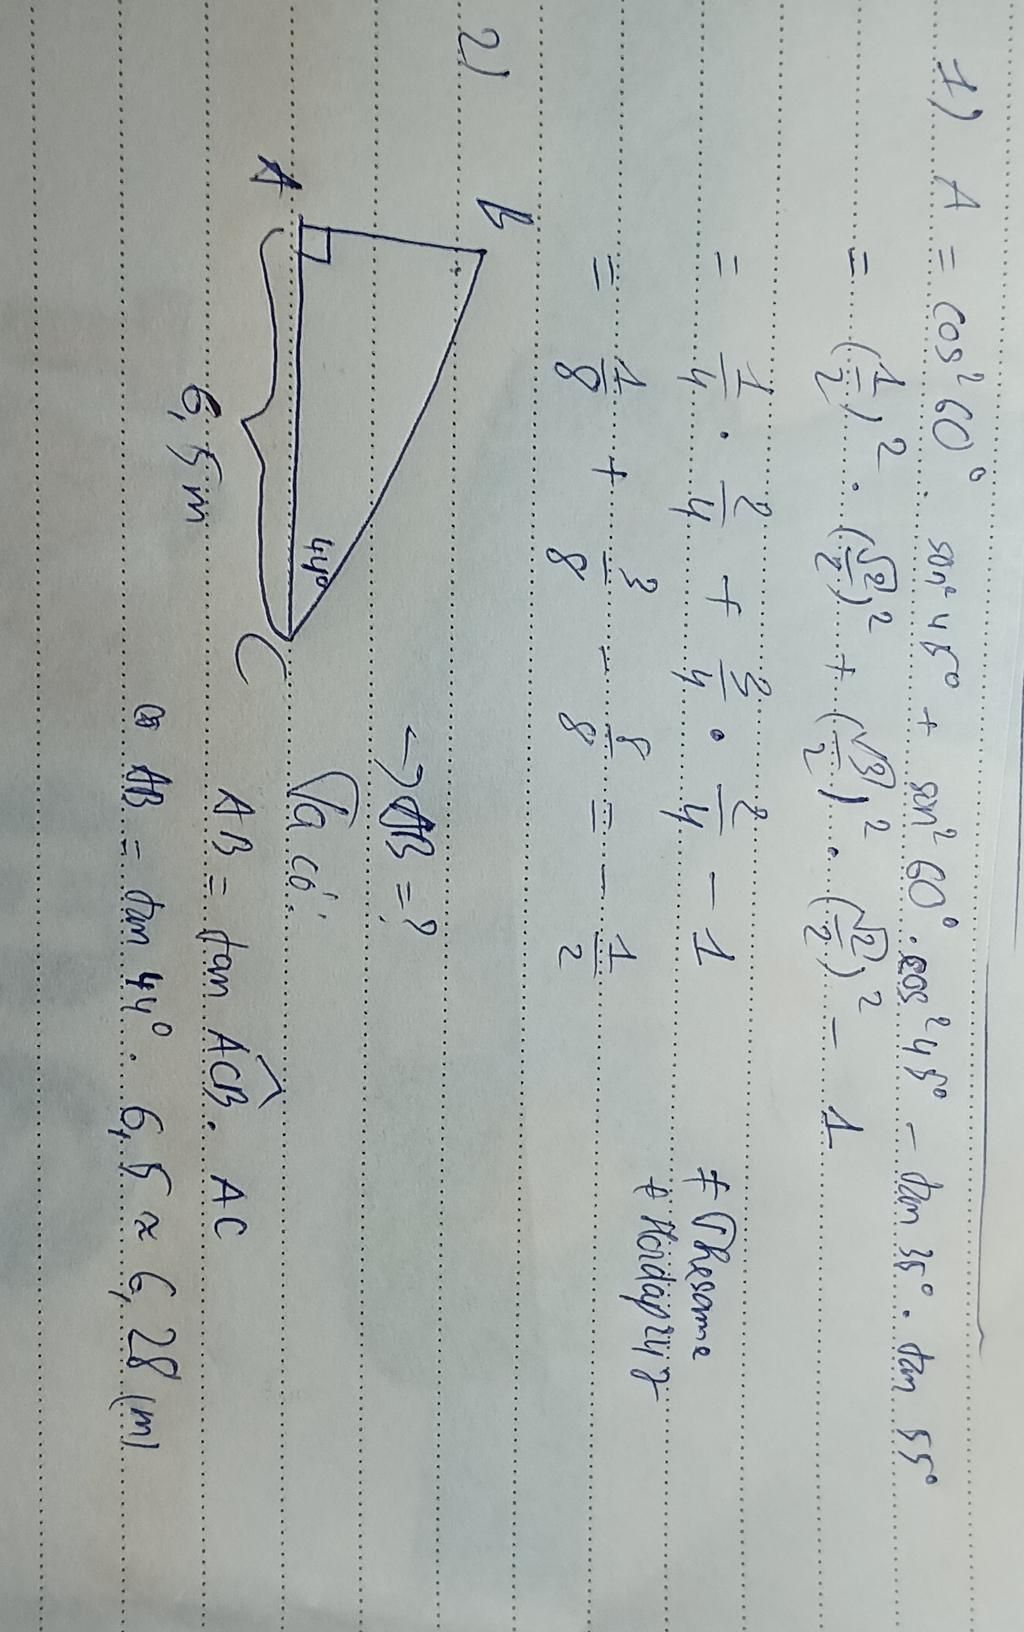 1) A = cos² 60° . sin² 45° + sin² 60° . cos² 45° - tan 35° . tan 55°
= (1/2)² . (√2/2)² + (√3/2)² . (√2/2)² - 1
= 1/4 . 2/4 + 3/4 . 2/4 - 1
= 1/8 + 3/8 - 8/8 = - 1/2
# Thesame
# Hoidap247
2)
B
A
44°
C
6,5m
→ AB = ?
Ta có:
AB = tan ACB . AC
AB = tan 44° . 6,5 ≈ 6,28 (m)